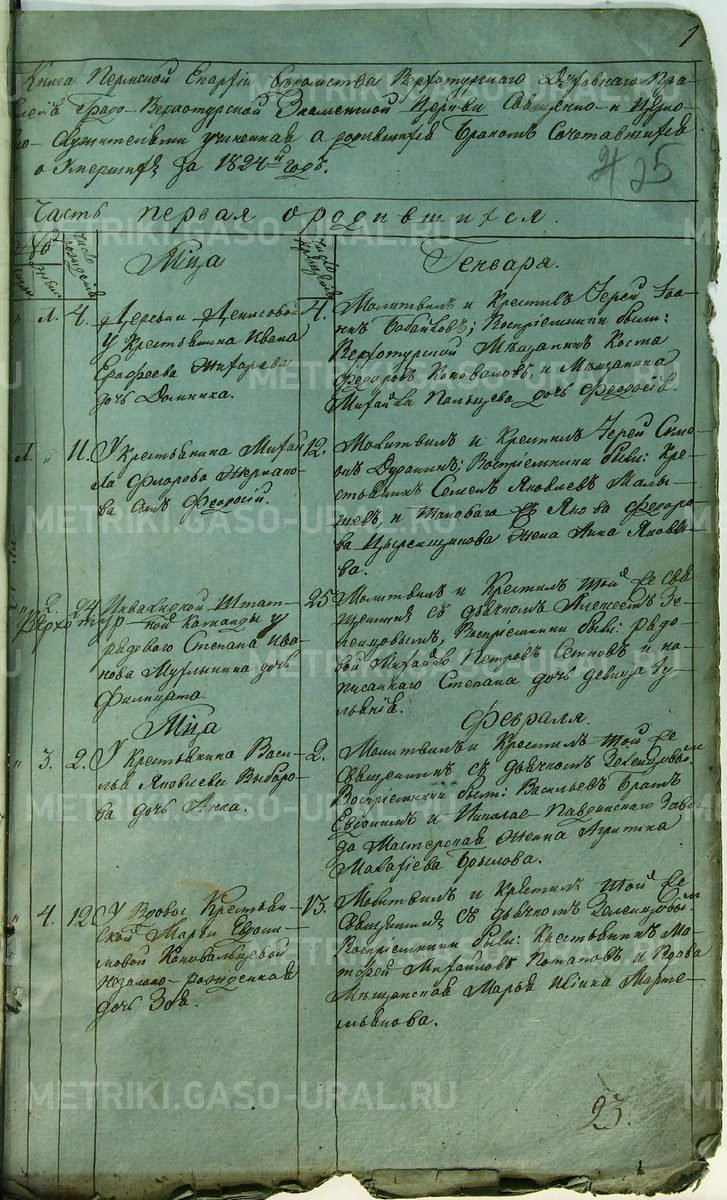 1
Книга Пермской Епархiи Ведомства Верхотурского Духовнаго Пра-
Градо-Верхотурской Знаменской Церкви Священно- и Церко-
во- служителями учиненная о родившихся Браком Сочетавшихся
о Умершихъ за 1824й годъ.
25
Часть первая о родившихся.
число рожденiя
число крещенiя
Мца
Генваря.
1. 4.
Деревни Денисовой
У Крестьянина Ивана
Ерофеева Жихарева
дочь Домника.
4.
Молитвилъ и Крестилъ Iерей Iоа-
ннъ Бабайловъ; Воспрiемники были:
Верхотурской Мѣщанинъ Коста
Федоровъ Коноваловъ и Мѣщанина
Михайла Пальцева дочь Феодосiя.
1. " 11.
У Крестьянина Михай
ла Фларова
ва сынъ Феодосiй.
12.
Молитвилъ и Крестилъ Iерей Симе-
онъ Дурапинъ; Воспрiемники были: Кре-
стьянинъ Семенъ Яковлевъ Малы-
шевъ, и Якова Федоро-
ва жена Анна Яковлева.
" 2. 24
Верхотур-
Инвалидной Штат-
ной команды у
рядоваго Степана Ива-
нова дочь
Филицата.
25
Молитвилъ и Крестилъ той же свя
щенникъ съ дьячкомъ Алексеемъ Зе-
ленцовымъ, Воспрiемники были: рядо-
вой Михайло Петровъ и на-
писаннаго Степана дочь девица Iу-
лианiя.
Мца
Февраля.
" 3. 2.
У Крестьянина Васи-
лья Яковлева Выборо-
ва дочь Анна.
2.
Молитвилъ и Крестилъ той же
Священникъ съ дьячкомъ Зеленцовымъ
Воспрiемники были: Васильевъ Братъ
Евдокимъ и Николае-Павдинскаго Заво-
да Мастерская женка Агрипина
Макарiева Брылова.
" 4. 12
У Вдовой Крестьян-
ской Марьи Евдоки-
мовой Коновальцевой
незаконо-рожденная
дочь Зоя.
13.
Молитвилъ и Крестилъ той же
Священникъ съ дьячкомъ Зеленцовымъ
Воспрiемники были: Крестьянинъ Ма-
тфей Михайловъ Потаповъ и Вдова
Мѣщанская Марья Марте-
мьянова.
25.
METRIKI.GASO-URAL.RU